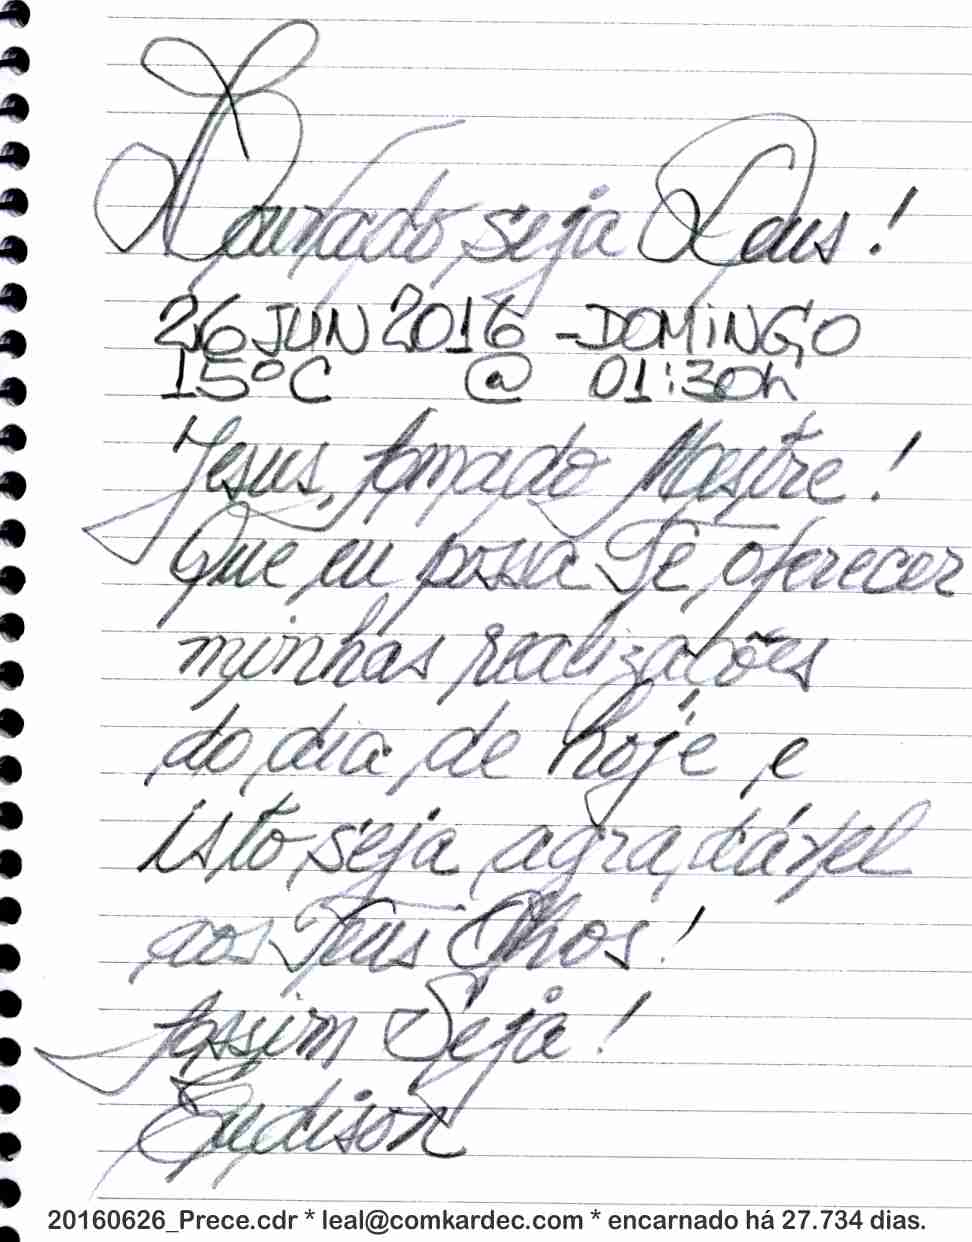 Louvado seja Deus!
26 JUN 2016 - DOMINGO
15°C @ 01:30h
Jesus, amado Mestre!
Que eu possa Te oferecer
minhas realizações
do dia de hoje e
isto seja agradável
aos Teus Olhos!
Assim Seja!
Eudison
20160626_Prece.cdr * leal@comkardec.com * encarnado há 27.734 dias.